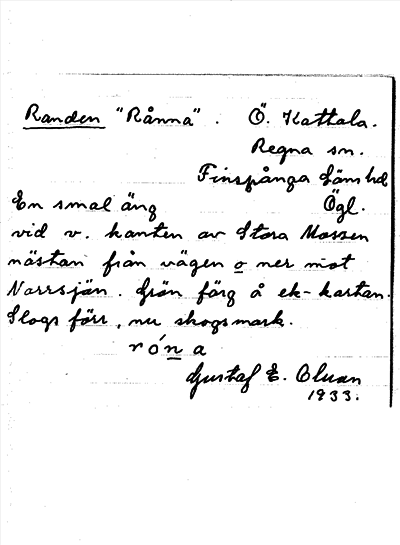 Randen "Rånna". Ö. Kattala.
Regna sn.
Finspånga läns hd
En smal äng Ögl.
vid v. kanten av Stora Mossen
nästan från vägen o ner mot
Norrsjön. Grön färg å ek-kartan.
Slogs förr, nu skogsmark.
róna
Gustaf E. Olsson
1933.